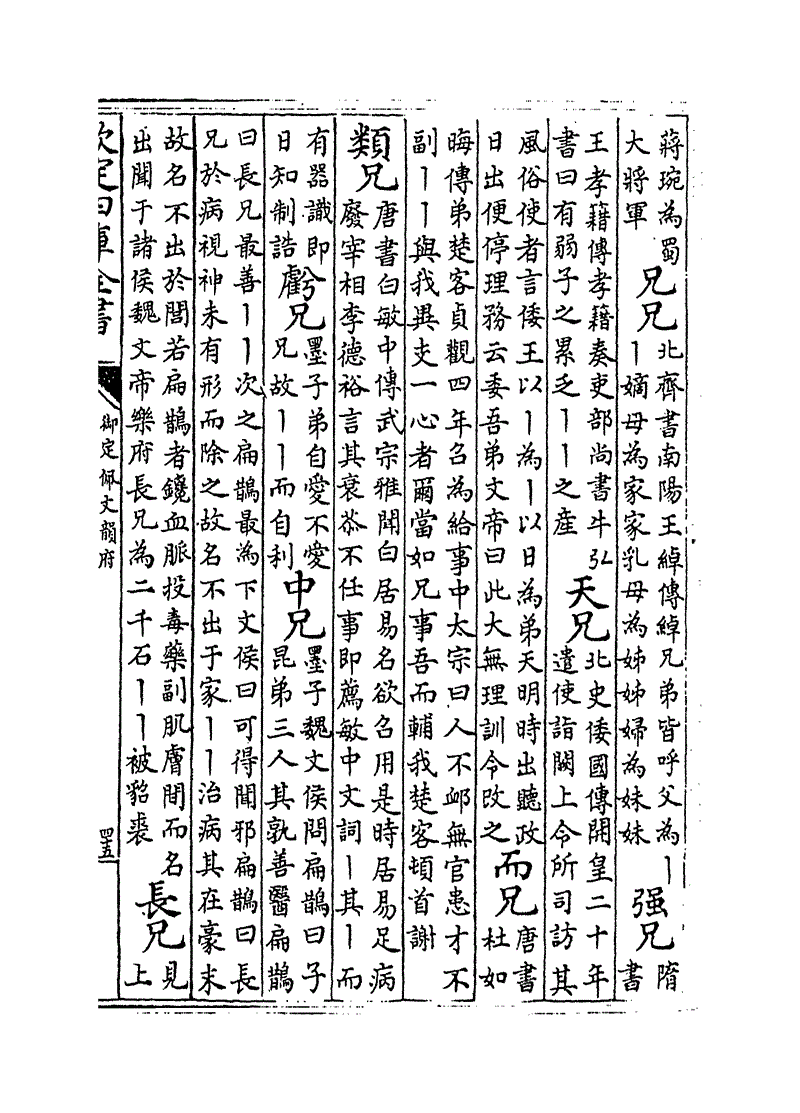 蔣琬為蜀
大將軍
兄兄
北齊書南陽王綽傳綽兄弟皆呼父為丨
丨嫡母為家家乳母為姊姊婦為妹妹
强兄
隋
書
王孝籍傳孝籍奏吏部尚書牛弘
書曰有弱子之累乏丨丨之産
天兄
北史倭國傳開皇二十年
遣使詣闕上令所司訪其
風俗使者言倭王以丨為丨以日為弟天明時出聽政
日出便停理務云委吾弟文帝曰此大無理訓令改之
而兄
唐書
杜如
晦傳弟楚客貞觀四年召為給事中太宗曰人不䘏無官患才不
副丨丨與我異支一心者爾當如兄事吾而輔我楚客頓首謝
類兄
唐書白敏中傳武宗雅聞白居易名欲召用是時居易足病
廢宰相李德裕言其衰苶不任事即薦敏中文詞丨其丨而
有器識即
日知制誥
虧兄
墨子弟自愛不愛
兄故丨丨而自利
中兄
墨子魏文侯問扁鵲曰子
昆弟三人其孰善醫扁鵲
曰長兄最善丨丨次之扁鵲最為下文侯曰可得聞邪扁鵲曰長
兄於病視神未有形而除之故名不出于家丨丨治病其在豪末
故名不出於閭若扁鵲者鑱血脈投毒藥副肌膚間而名
出聞于諸侯魏文帝樂府長兄為二千石丨丨被貂裘
長兄
見
上
欽定四庫全書
御定佩文韻府
四五